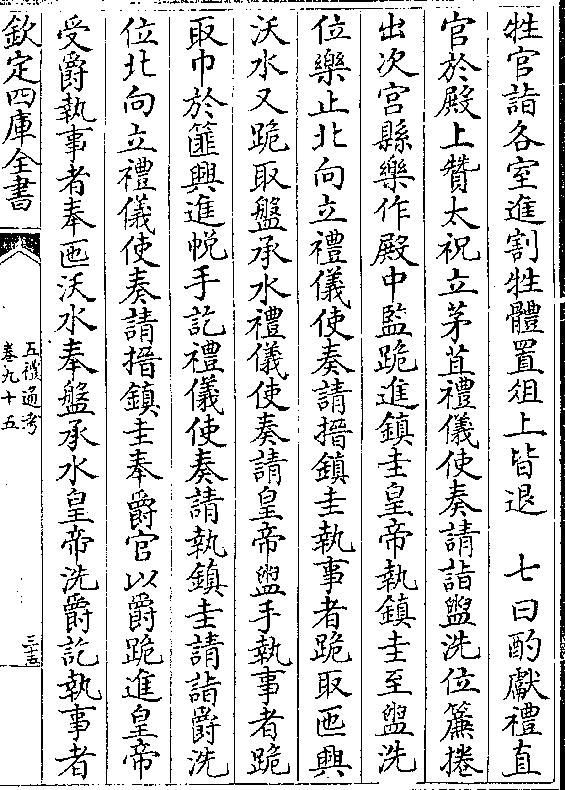 牲官詣各室進割牲體置俎上皆退　七曰酌獻禮直
官於殿上贊太祝立茅苴禮儀使奏請詣盥洗位簾捲
出次宮縣樂作殿中監跪進鎮圭皇帝執鎮圭至盥洗
位樂止北向立禮儀使奏請搢鎮圭執事者跪取匜興
沃水又跪取盤承水禮儀使奏請皇帝盥手執事者跪
取巾於篚興進帨手訖禮儀使奏請執鎮圭請詣爵洗
位北向立禮儀使奏請搢鎮圭奉爵官以爵跪進皇帝
受爵執事者奉匜沃水奉盤承水皇帝洗爵訖執事者
欽定四庫全書
五禮通考
卷九十五
三五